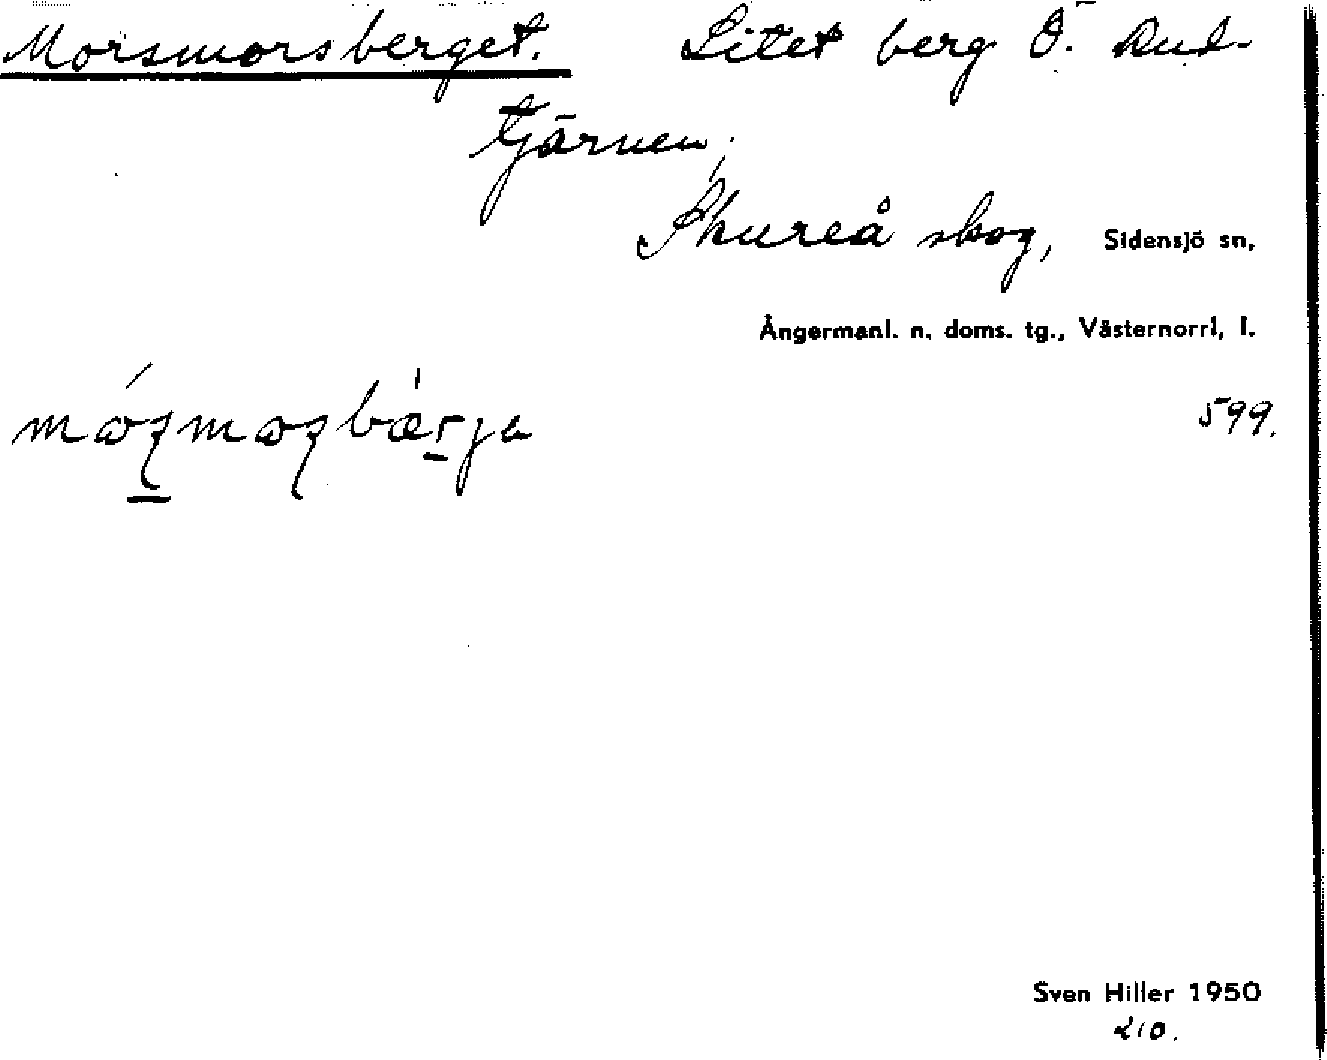 Morsmorsberget. Litet berg Ö. Rud-
tjärnen,
Skureå skog, Sidensjö sn,
Ångermanl. n. doms. tg., Västernorrl, l.
599.
Sven Hiller 1950
210.